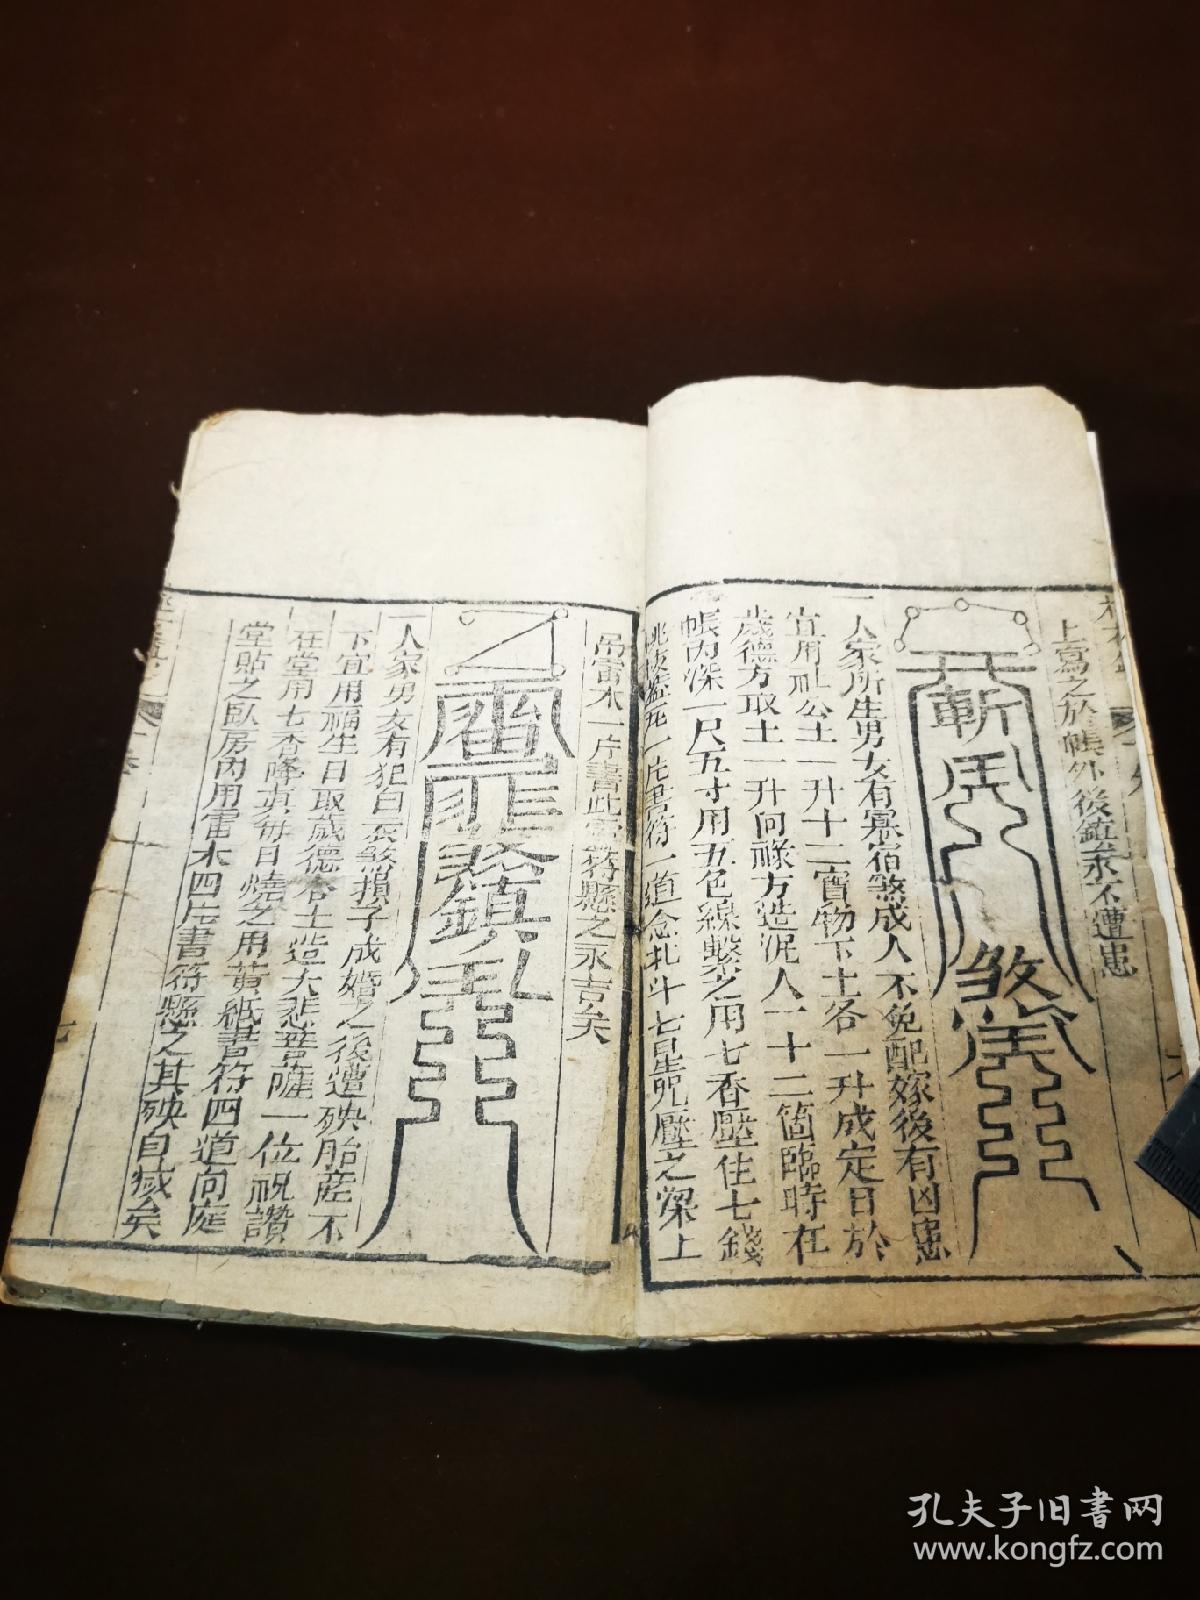 上寫之於帳外後鎮永不遭患
斬
煞
一人家所生男女有寡宿煞成人不免配嫁後有凶患
宜用社公土一升十二寶物下土各一升成定日於
歲德方取土一升向祿方造泥人一十二箇臨時在
帳內深一尺五寸用五色線繫之用七香壓住七錢
一片書符一道念北斗七星咒壓之梁上
吊雷木一片書此靈符懸之永吉矣
鎮
一人家男女有犯白衣煞損子成婚之後遭殃胎産不
下宜用福生日取歲德合土造大悲菩薩一位祝讚
在堂用七香降真每日燒之用黃紙書符四道向庭
堂貼之臥房內用雷木四片書符懸之其殃自滅矣
七
孔夫子旧書网
www.kongfz.com